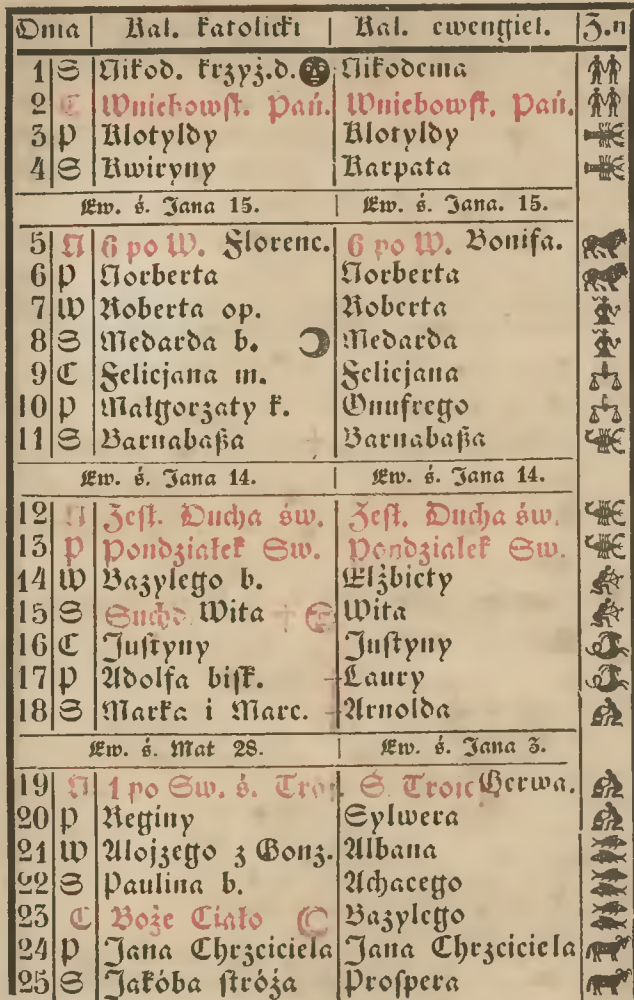 Dnia | Kal. katolicki | Kal. ewengiel. | Z.n
1 S Nikod. krzyż.d. Nikodema
2 C Wniebowst. Pań. Wniebowst. Pań.
3 P Klotyldy Klotyldy
4 S Kwiryny Karpata
Ew. ś. Jana 15. | Ew. ś. Jana. 15.
5 N 6 po W. Florenc. 6 po W. Bonifa.
6 P Norberta Norberta
7 W Roberta op. Roberta
8 S Medarda b. Medarda
9 C Felicjana m. Felicjana
10 P Małgorzaty k. Onufrego
11 S Barnabaßa Barnabaßa
Ew. ś. Jana 14. | Ew. ś. Jana 14.
12 N Zesł. Ducha św. Zesł. Ducha św.
13 P Pondziałek Sw. Pondzialek Sw.
14 W Bazylego b. Elżbiety
15 S Suche Wita Wita
16 C Justyny Justyny
17 P Adolfa bisk. Laury
18 S Marka i Marc. Arnolda
Ew. ś. Mat 28. | Ew. ś. Jana 3.
19 N 1 po Sw. ś. Tró. Ś. Troic Gerwa.
20 P Reginy Sylwera
21 W Alojzego z Gonz. Albana
22 S Paulina b. Achacego
23 C Boże Ciało Bazylego
24 P Jana Chrzciciela Jana Chrzciciela
25 S Jakóba stróża Prospera